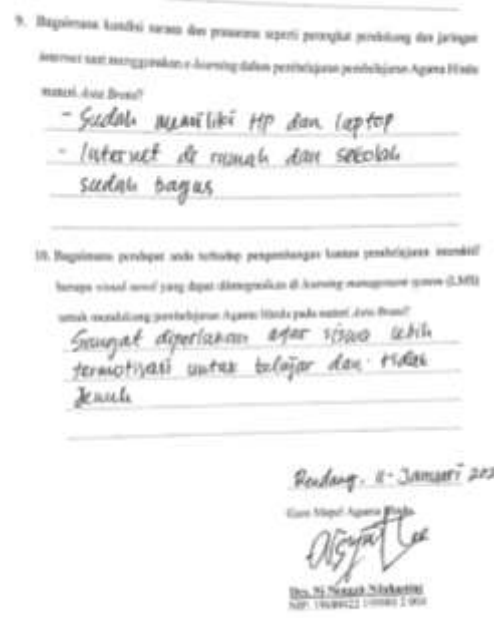 9. Bagaimana kondisi sarana dan prasarana seperti perangkat pendukung dan jaringan
internet saat menggunakan e-learning dalam pembelajaran Agama Hindu
materi Asta Brata?
- Sudah memiliki HP dan laptop
- Internet di rumah dan sekolah
sudah bagus
10. Bagaimana pendapat anda terhadap pengembangan konten pembelajaran interaktif
berupa visual novel yang dapat diintegrasikan di learning management system (LMS)
untuk mendukung pembelajaran Agama Hindu pada materi Asta Brata?
Sangat diperlukan agar siswa lebih
termotivasi untuk belajar dan tidak
Jenuh
Rendang, 11-Januari 202
Guru Mapel Agama Hindu
Dra. Ni Nengah
NIP.